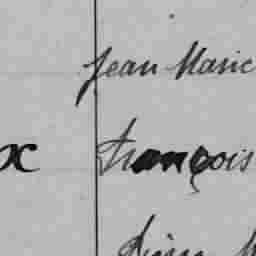 Jean Marie
x François